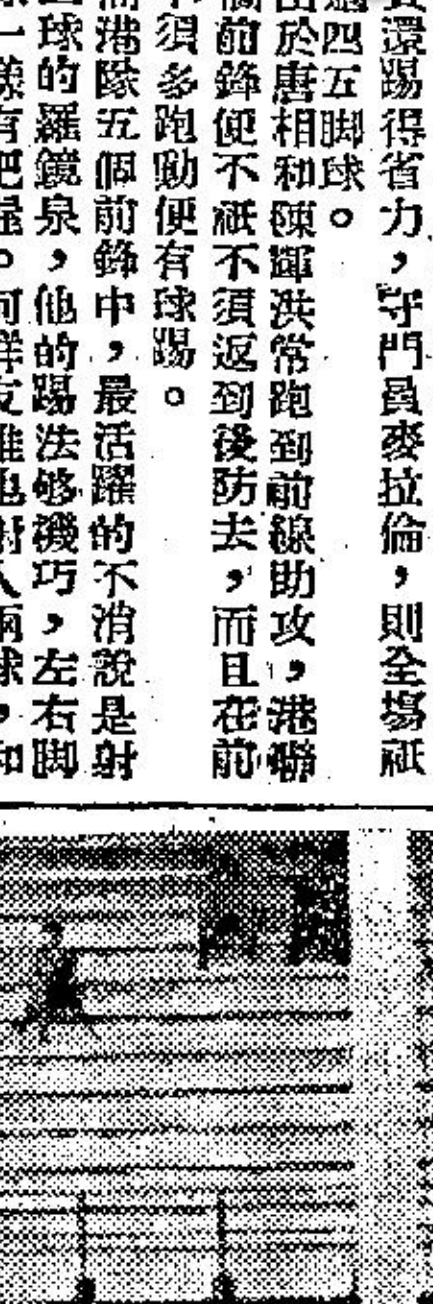 還踢得省力，守門員麥拉倫，則全場祇
四五脚球。
於唐相和陳輝洪常跑到前線助攻，港聯
前鋒便不祇不須返到後防去，而且在前
須多跑動便有球踢。
港隊五個前鋒中，最活躍的不消說是射
球的羅鏡泉，他的踢法够機巧，左右脚